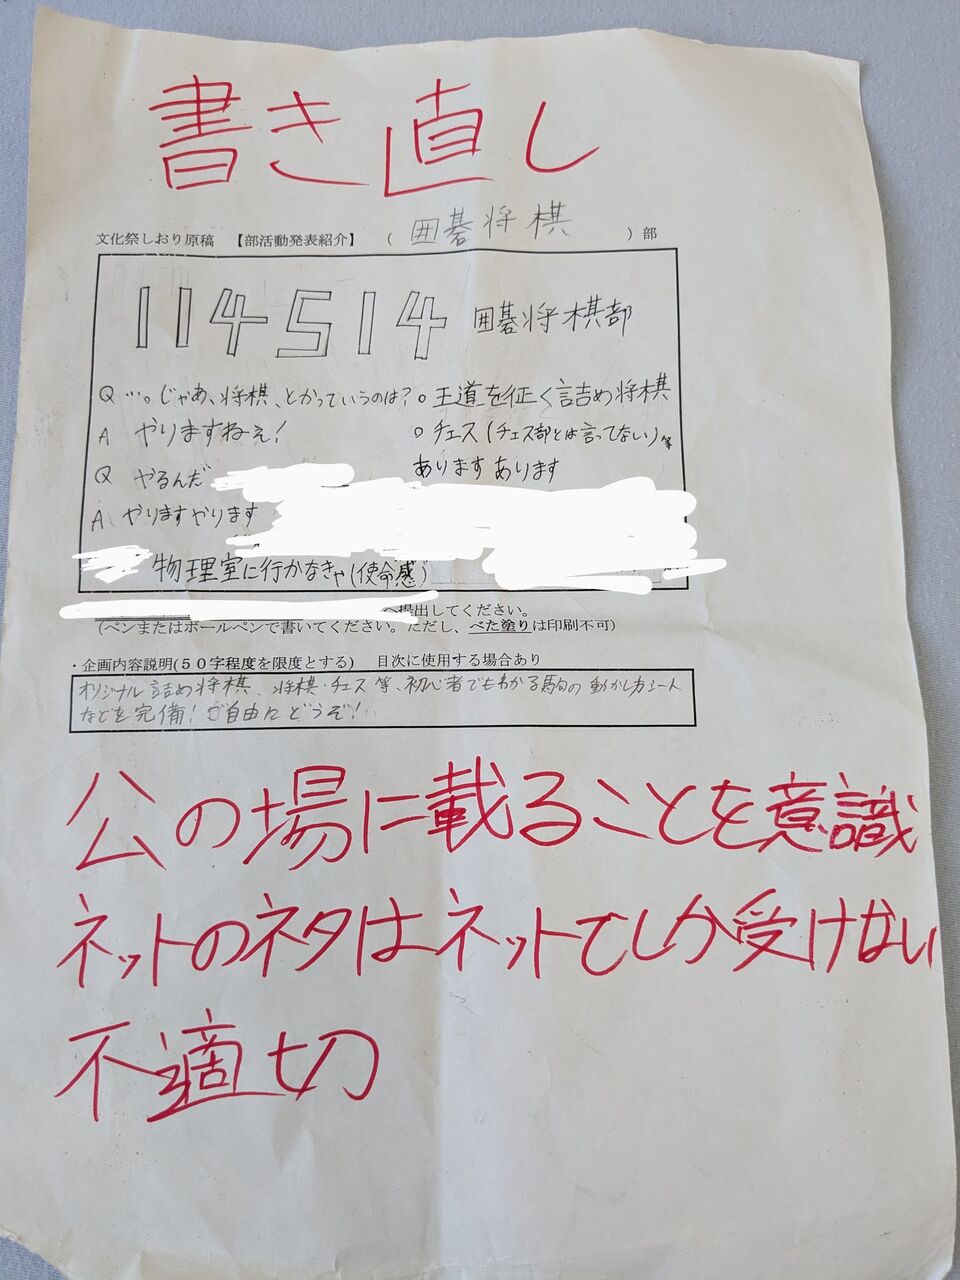 書き直し
文化祭しおり原稿 【部活動発表紹介】 ( 囲碁将棋 ) 部
114514 囲碁将棋部
Q …。じゃあ、将棋、とかっていうのは?
A やりますねぇ!
Q やるんだ
A やりますやります
物理室に行かなきゃ(使命感)
○ 王道を征く詰め将棋
○ チェス (チェス部とは言ってない) 等
あります あります
へ提出してください。
(ペンまたはボールペンで書いてください。ただし、べた塗りは印刷不可)
・企画内容説明(50字程度を限度とする) 目次に使用する場合あり
オリジナル詰め将棋、将棋・チェス等、初心者でもわかる駒の動かし方シート
などを完備! ご自由にどうぞ!
公の場に載ることを意識
ネットのネタはネットでしか受けない
不適切